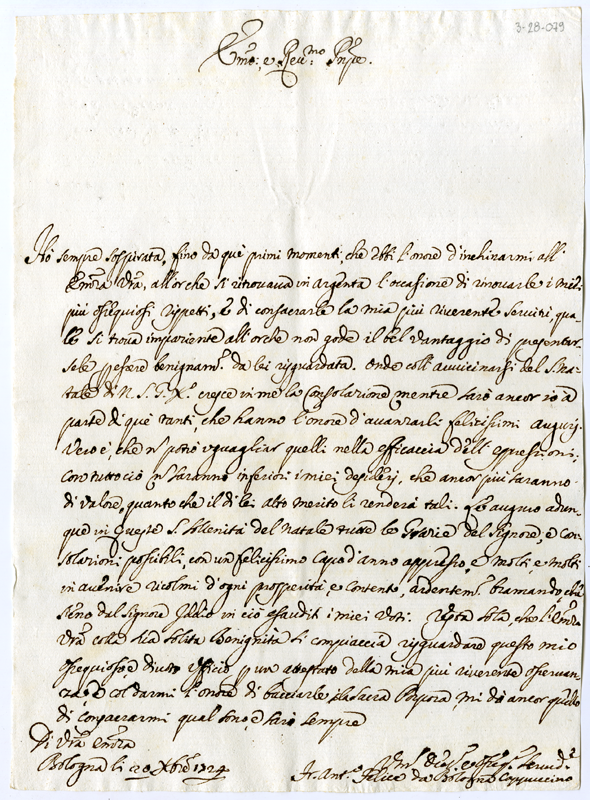 3-28-079
Em.o: e Reu:mo Pnpe.
Hò sempre sospirata, fino da què primi momenti, che ebbi l'onore d'inchinarmi all'
Emza Vra, all'orche si ritrouaua in Argenta l'occasione di rinouarle i miei
più ossequiosi rispetti, e di consacrarle la mia più riuerente seruitù, qua-
le si troua impaziente all'orche non gode il bel vantaggio di presentar-
sele essere benignam.e da lei risguardata. Onde coll'auuicinarsi del S. Na-
tale di N. S. G. X.o cresce in me la Consolazione mentre sarò ancor io à
parte di què tanti, che hanno l'onore d'auanzarli felicissimi augurj.
Vero è, che n potrò vguagliar quelli nella efficacia dell'espressioni;
con tuttociò n saranno inferiori i miei desiderj, che ancor più saranno
di valore, quanto che il di lei alto merito li renderà tali. Le auguro adun-
que in questa S. Sollenità del Natale tutte le Grazie del Signore, e con-
solazioni possibili, con un felicissimo Capo d'anno appresso, e molti, e molti
in auuenire ricolmi d'ogni prosperità e contento, ardentem.e bramando, che
sieno dal Signore Iddio in ciò esauditi i miei voti. Resta solo, che l'Emza
Vra colla sua solita Benignità si compiaccia risguardare questo mio
ossequioso, e diuoto Officio p un attestato della mia più riuerente osseruan-
za, e col darmi l'onore di bacciarle la sacra Porpora mi dia ancor quello
di consacrarmi qual sono, e sarò sempre
Di Vra Emza
Bologna li 20 Xbre 1724
Vm.o Diu.o e Osseq.o Seruid.e
Fr. Ant.o Felice da Bologna Cappuccino